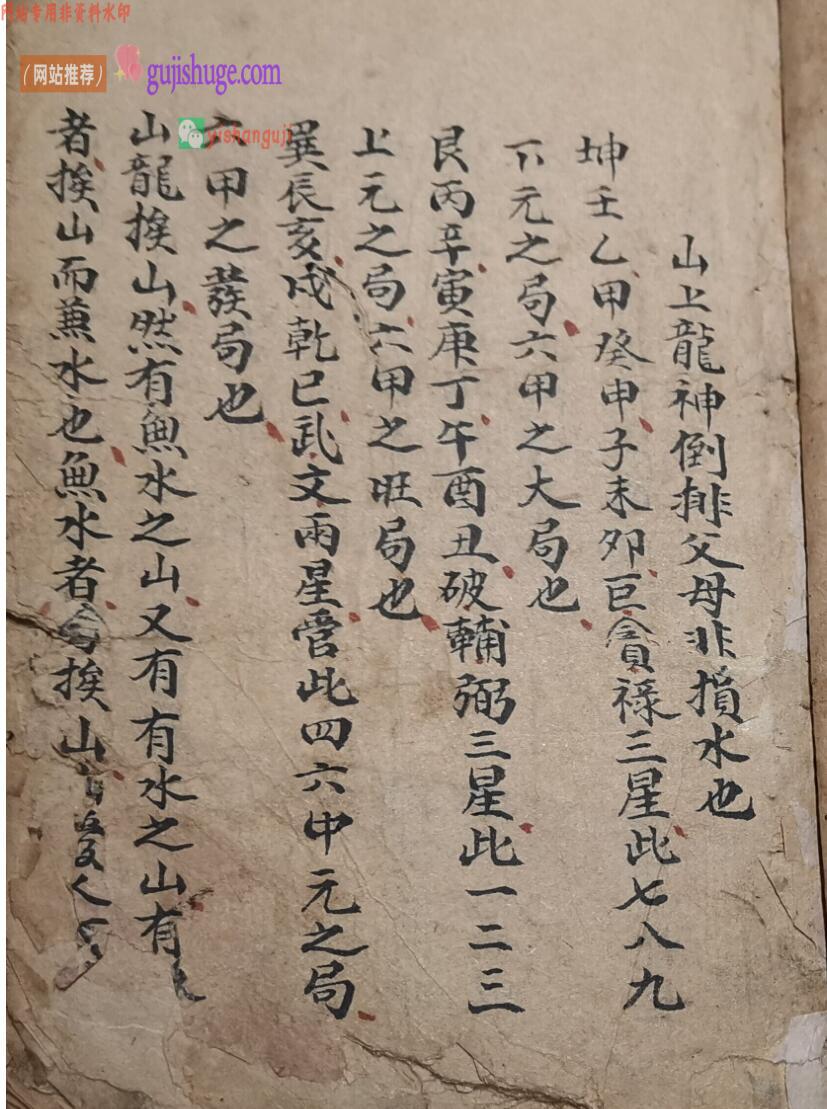 网站专用非资料水印
（网站推荐）
gujishuge.com
yishanguji
山上龍神倒排父母非損水也
坤壬乙甲癸申子未夘巨貪祿三星此七八九
下元之局六甲之大局也
艮丙辛寅庚丁午酉丑破輔弼三星此一二三
上元之局六甲之旺局也
巽辰亥戌乾巳武文兩星管此四六中元之局
六甲之發局也
山龍挨山然有無水之山又有有水之山有
者挨山而兼水也無水者挨山